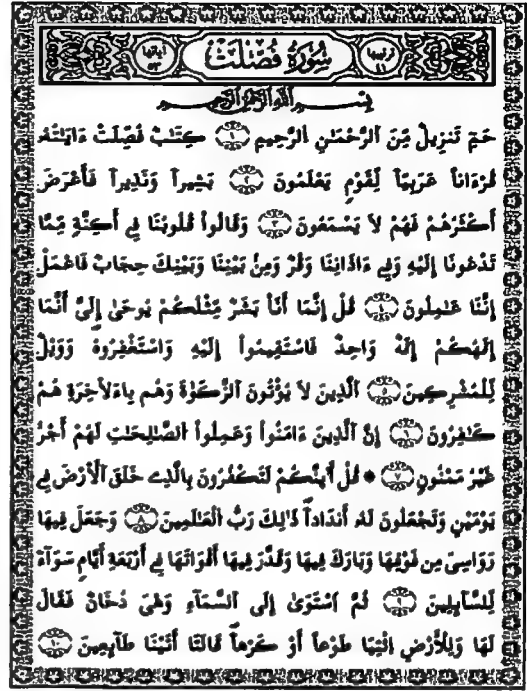 ترتيبها ٤١ سُورَةُ فُصِّلَتْ آياتها ٥٣
بِسْمِ اللَّهِ الرَّحْمَٰنِ الرَّحِيمِ
حَمِٓ تَنزِيلٌ مِّنَ اَ۬لرَّحْمَٰنِ اِ۬لرَّحِيمِ ١ كِتَٰبٌ فُصِّلَتْ ءَايَٰتُهُۥ
قُرْءَاناً عَرَبِيّاً لِّقَوْمٍ يَعْلَمُونَ ٢ بَشِيراً وَنَذِيراً فَأَعْرَضَ
أَكْثَرُهُمْ فَهُمْ لَا يَسْمَعُونَ ٣ وَقَالُواْ قُلُوبُنَا فِے أَكِنَّةٍ مِّمَّا
تَدْعُونَا إِلَيْهِ وَفِے ءَاذَانِنَا وَقْرٌ وَمِنۢ بَيْنِنَا وَبَيْنِكَ حِجَابٌ فَاعْمَلْ
إِنَّنَا عَٰمِلُونَ ٤ قُلْ إِنَّمَا أَنَا بَشَرٌ مِّثْلُكُمْ يُوحَىٰ إِلَىَّ أَنَّمَا
إِلَٰهُكُمْ إِلَٰهٌ وَٰحِدٌ فَاسْتَقِيمُواْ إِلَيْهِ وَاسْتَغْفِرُوهُ وَوَيْلٌ
لِّلْمُشْرِكِينَ ٥ اَ۬لَّذِينَ لَا يُؤْتُونَ اَ۬لزَّكَوٰةَ وَهُم بِالَاخِرَةِ هُمْ
كَٰفِرُونَ ٦ إِنَّ اَ۬لَّذِينَ ءَامَنُواْ وَعَمِلُواْ اُ۬لصَّٰلِحَٰتِ لَهُمْ أَجْرٌ
غَيْرُ مَمْنُونٍ ٧ * قُلْ أَئِنَّكُمْ لَتَكْفُرُونَ بِالَّذِے خَلَقَ اَ۬لْأَرْضَ فِے
يَوْمَيْنِ وَتَجْعَلُونَ لَهُۥ أَندَاداً ذَٰلِكَ رَبُّ اُ۬لْعَٰلَمِينَ ٨ وَجَعَلَ فِيهَا
رَوَٰسِىَ مِن فَوْقِهَا وَبَٰرَكَ فِيهَا وَقَدَّرَ فِيهَا أَقْوَٰتَهَا فِے أَرْبَعَةِ أَيَّامٍ سَوَآءً
لِّلسَّآئِلِينَ ٩ ثُمَّ اَ۪سْتَوَىٰ إِلَى اَ۬لسَّمَآءِ وَهْىَ دُخَانٌ فَقَالَ
لَهَا وَلِلْأَرْضِ اِ۪ئْتِيَا طَوْعاً أَوْ كَرْهاً قَالَتَا أَتَيْنَا طَآئِعِينَ ١٠